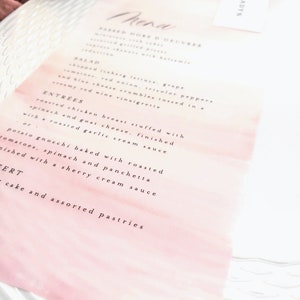 Menu
PASSED HORS D'OEUVRES
SALAD
chopped iceberg lettuce, grape
tomatoes, red onion, banana peppers
and bleu cheese crumbles tossed in a
creamy red wine vinaigrette
ENTREES
roasted chicken breast stuffed with
spinach and goat cheese, finished
with a roasted garlic cream sauce
potato gnocchi baked with roasted
tomatoes, spinach and panchetta
finished with a sherry cream sauce
ERT
cake and assorted pastries